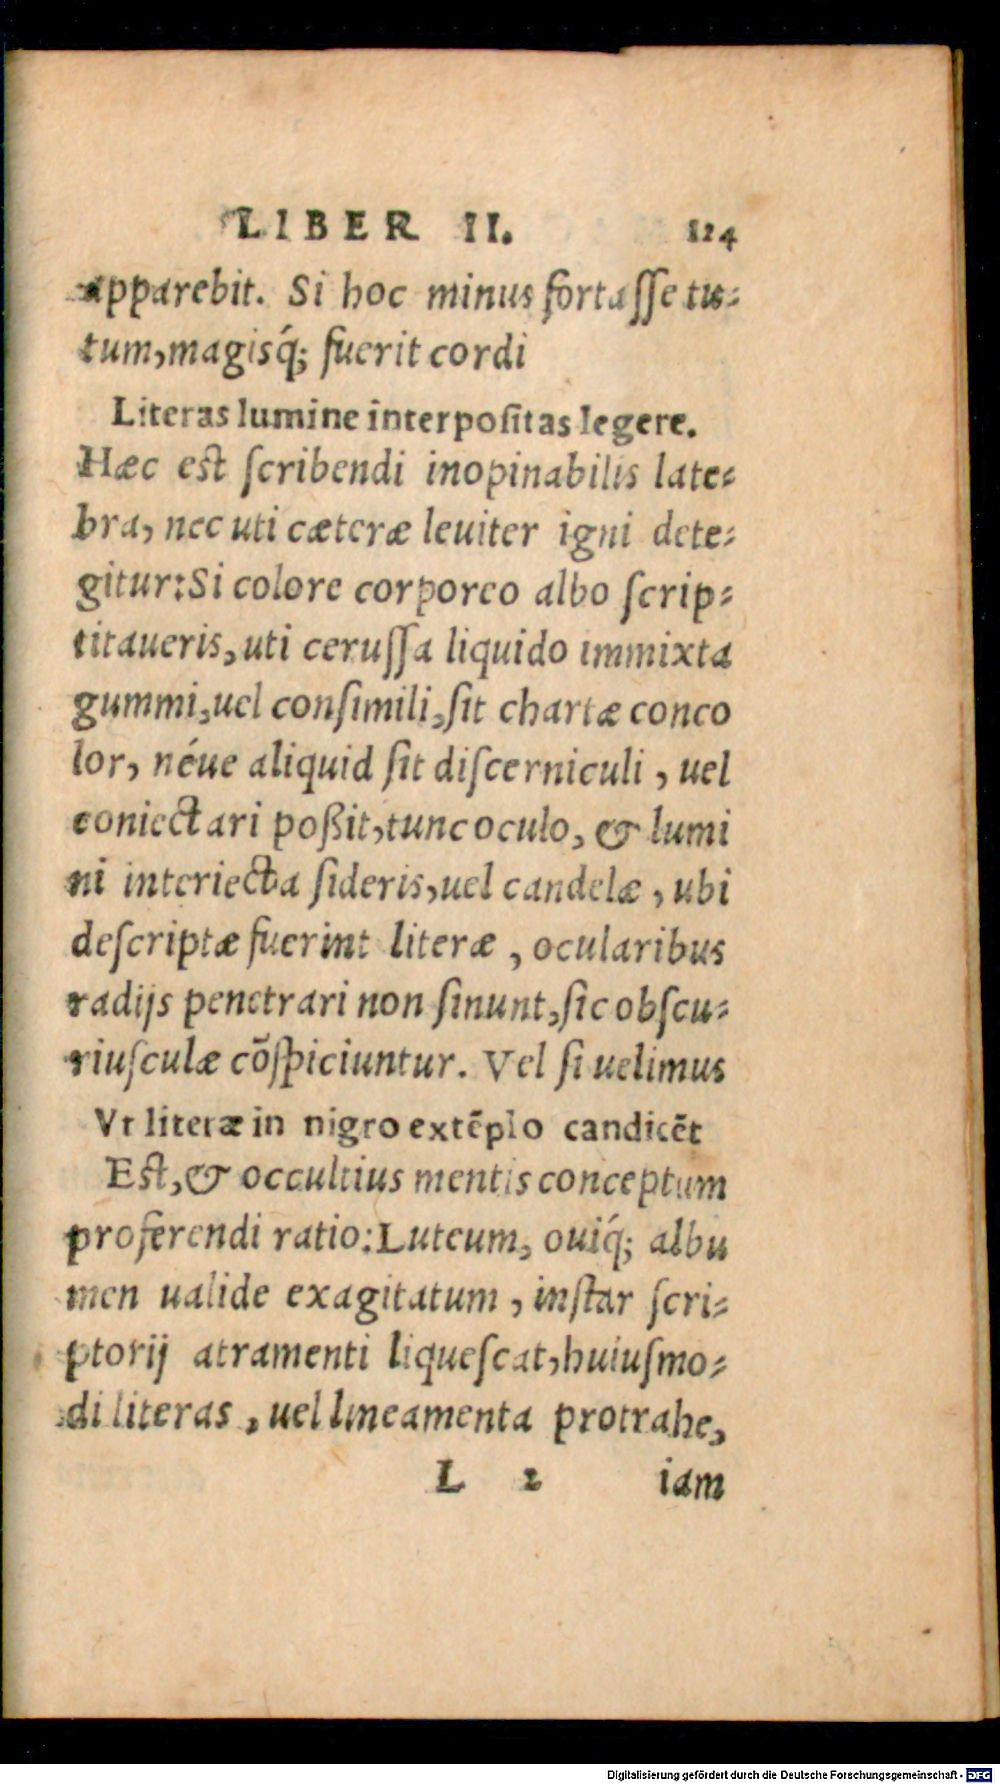 LIBER II. 124
apparebit. Si hoc minus fortaſſe tu-
tum, magisq́; fuerit cordi
Literas lumine interpoſitas legere.
Hæc eſt ſcribendi inopinabilis late-
bra, nec uti cæteræ leuiter igni dete-
gitur: Si colore corporeo albo ſcrip-
titaueris, uti ceruſſa liquido immixta
gummi, uel conſimili, ſit chartæ conco
lor, néue aliquid ſit diſcerniculi, uel
coniectari poßit, tunc oculo, & lumi
ni interiecta ſideris, uel candelæ, ubi
deſcriptæ fuerint literæ, ocularibus
radijs penetrari non ſinunt, ſic obſcu-
riuſculæ cõſpiciuntur. Vel ſi uelimus
Vt literæ in nigro extẽplo candicẽt
Eſt, & occultius mentis conceptum
proferendi ratio: Luteum, ouiq́; albu
men ualide exagitatum, inſtar ſcri-
ptorij atramenti liqueſcat, huiuſmo-
di literas, uel lineamenta protrahe,
L 2 iam
Digitalisierung gefördert durch die Deutsche Forschungsgemeinschaft - DFG